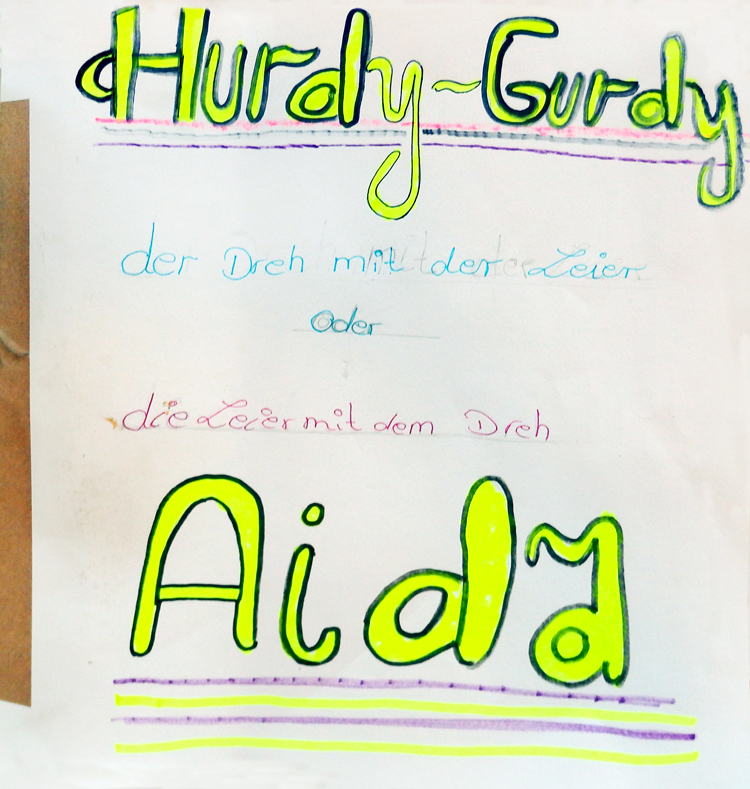 Hurdy~Gurdy
der Dreh mit der Leier
Oder
die Leier mit dem Dreh
Aida